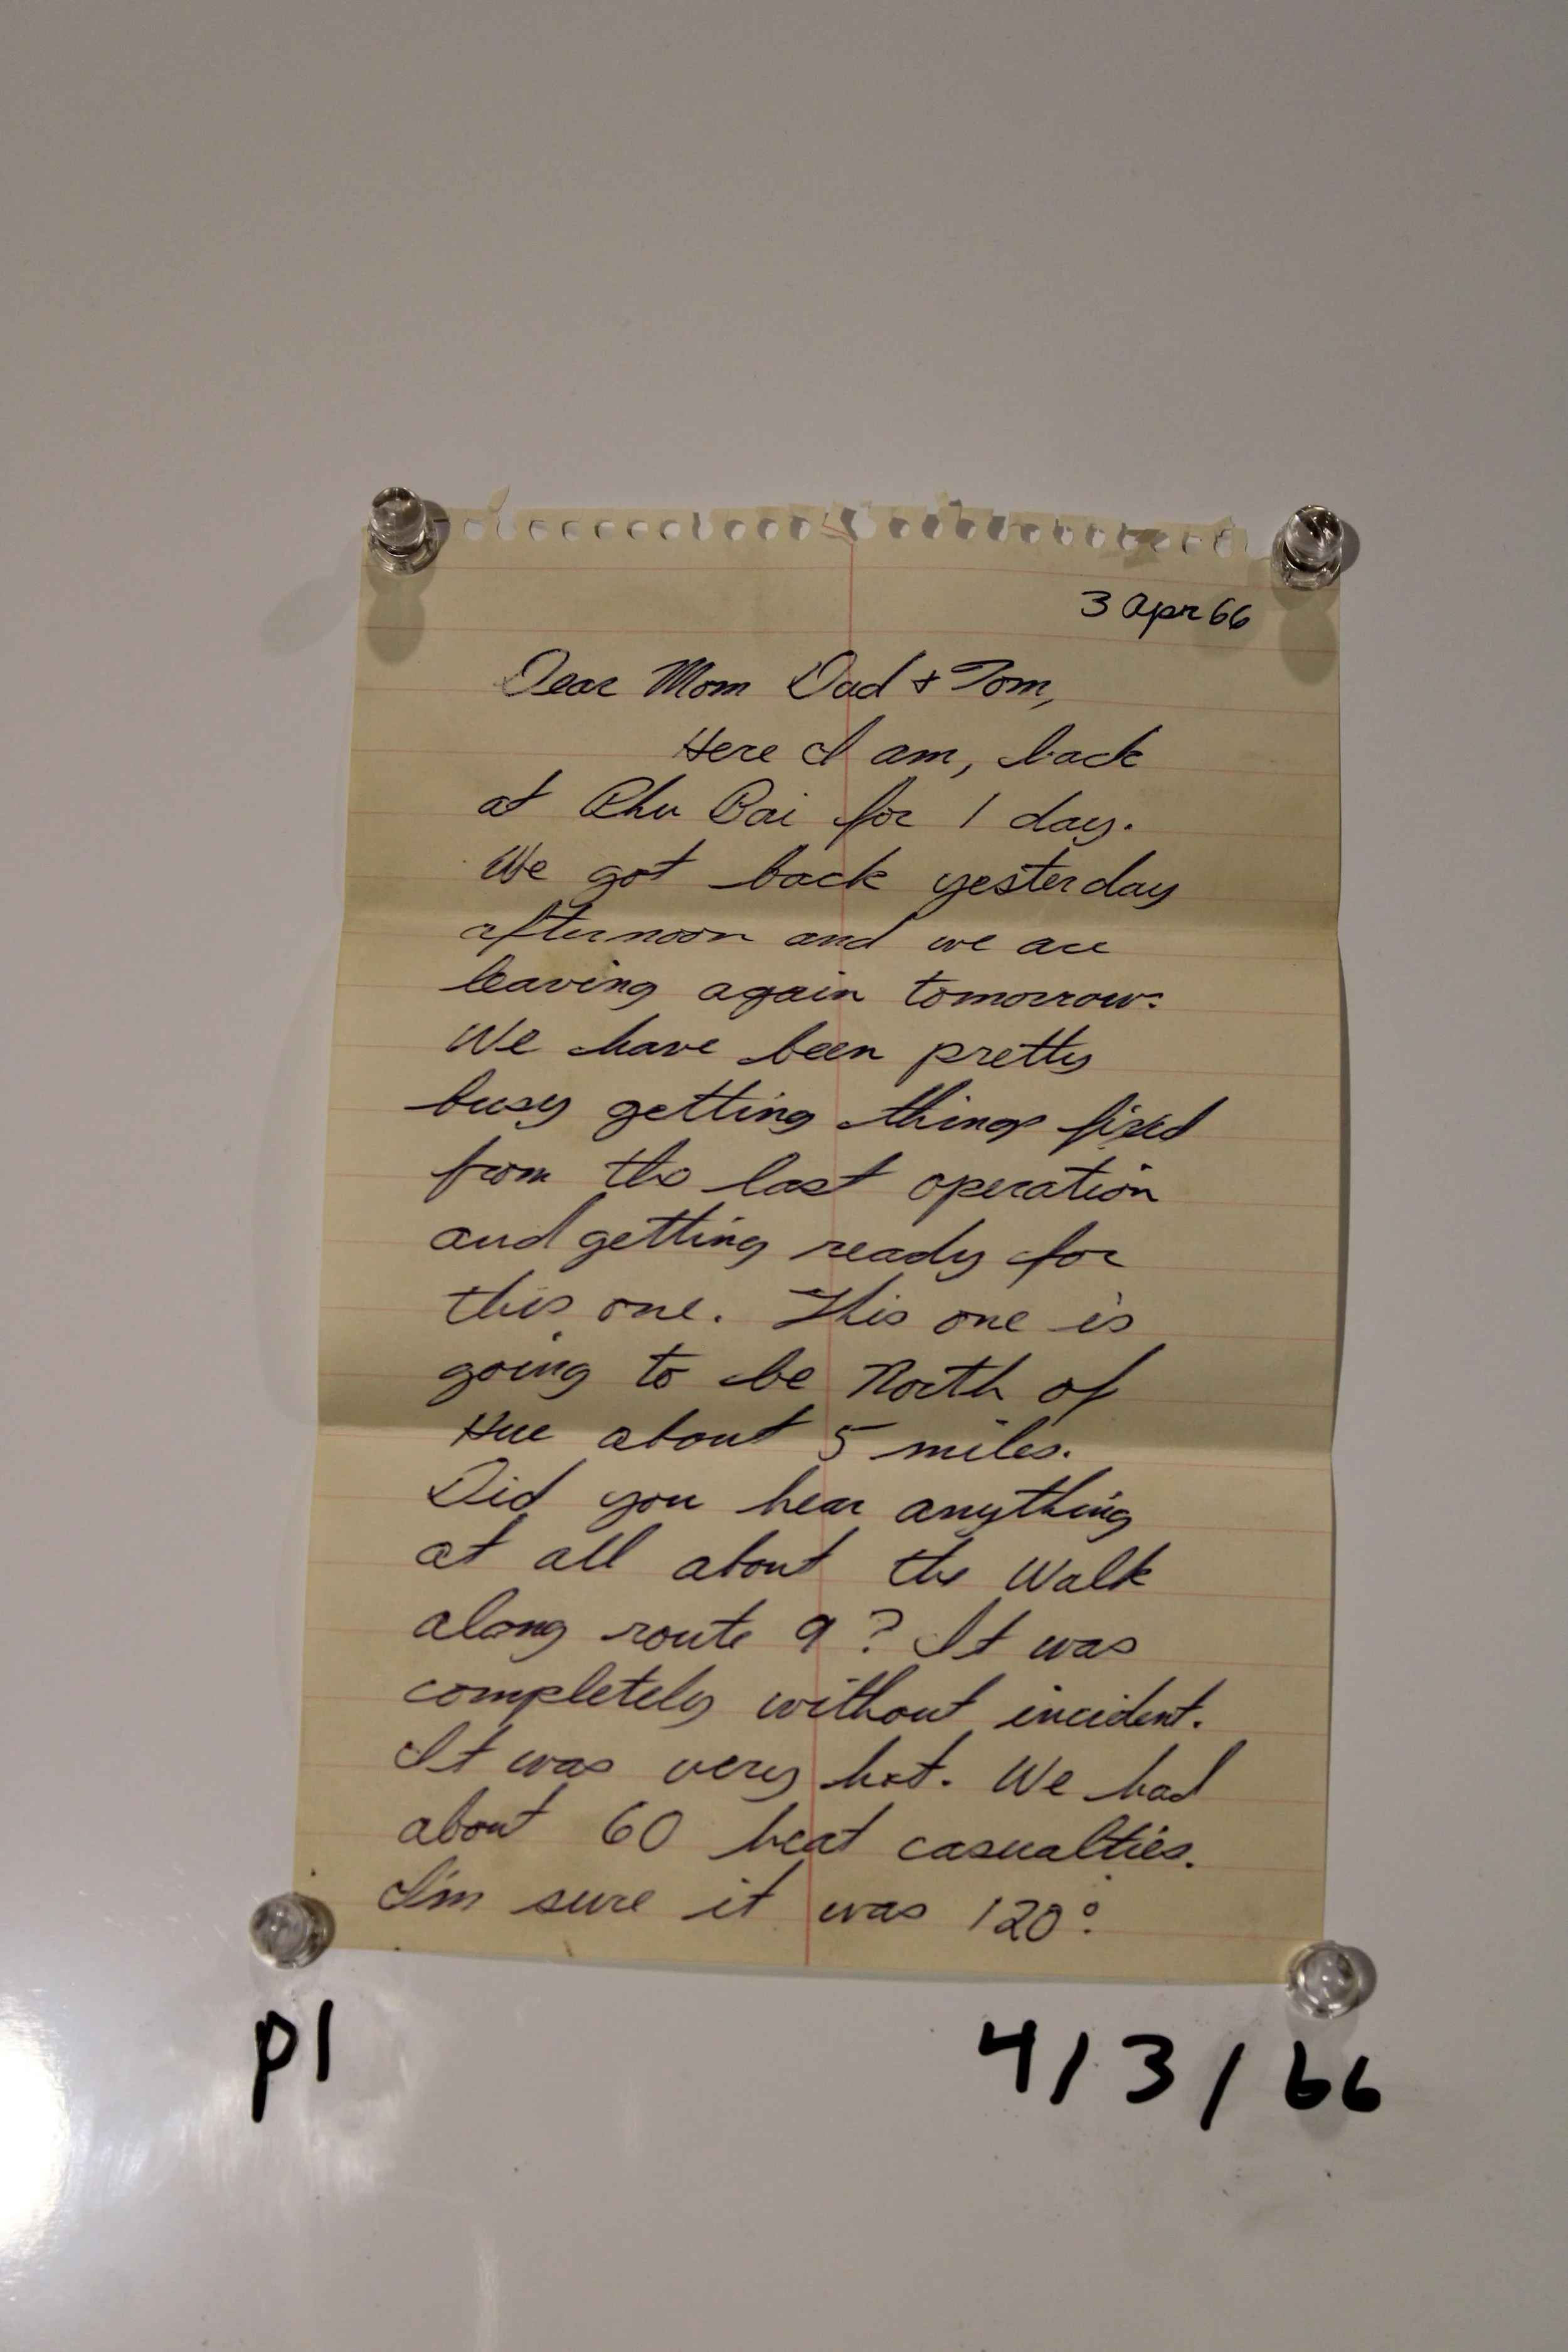 3 Apr 66
Dear Mom Dad & Tom,
Here I am, back
at Phu Bai for 1 day.
We got back yesterday
afternoon and we are
leaving again tomorrow.
We have been pretty
busy getting things fixed
from the last operation
and getting ready for
this one. This one is
going to be North of
Hue about 5 miles.
Did you hear anything
at all about the Walk
along route 9? It was
completely without incident.
It was very hot. We had
about 60 heat casualties.
I'm sure it was 120°.
p1
4/3/66